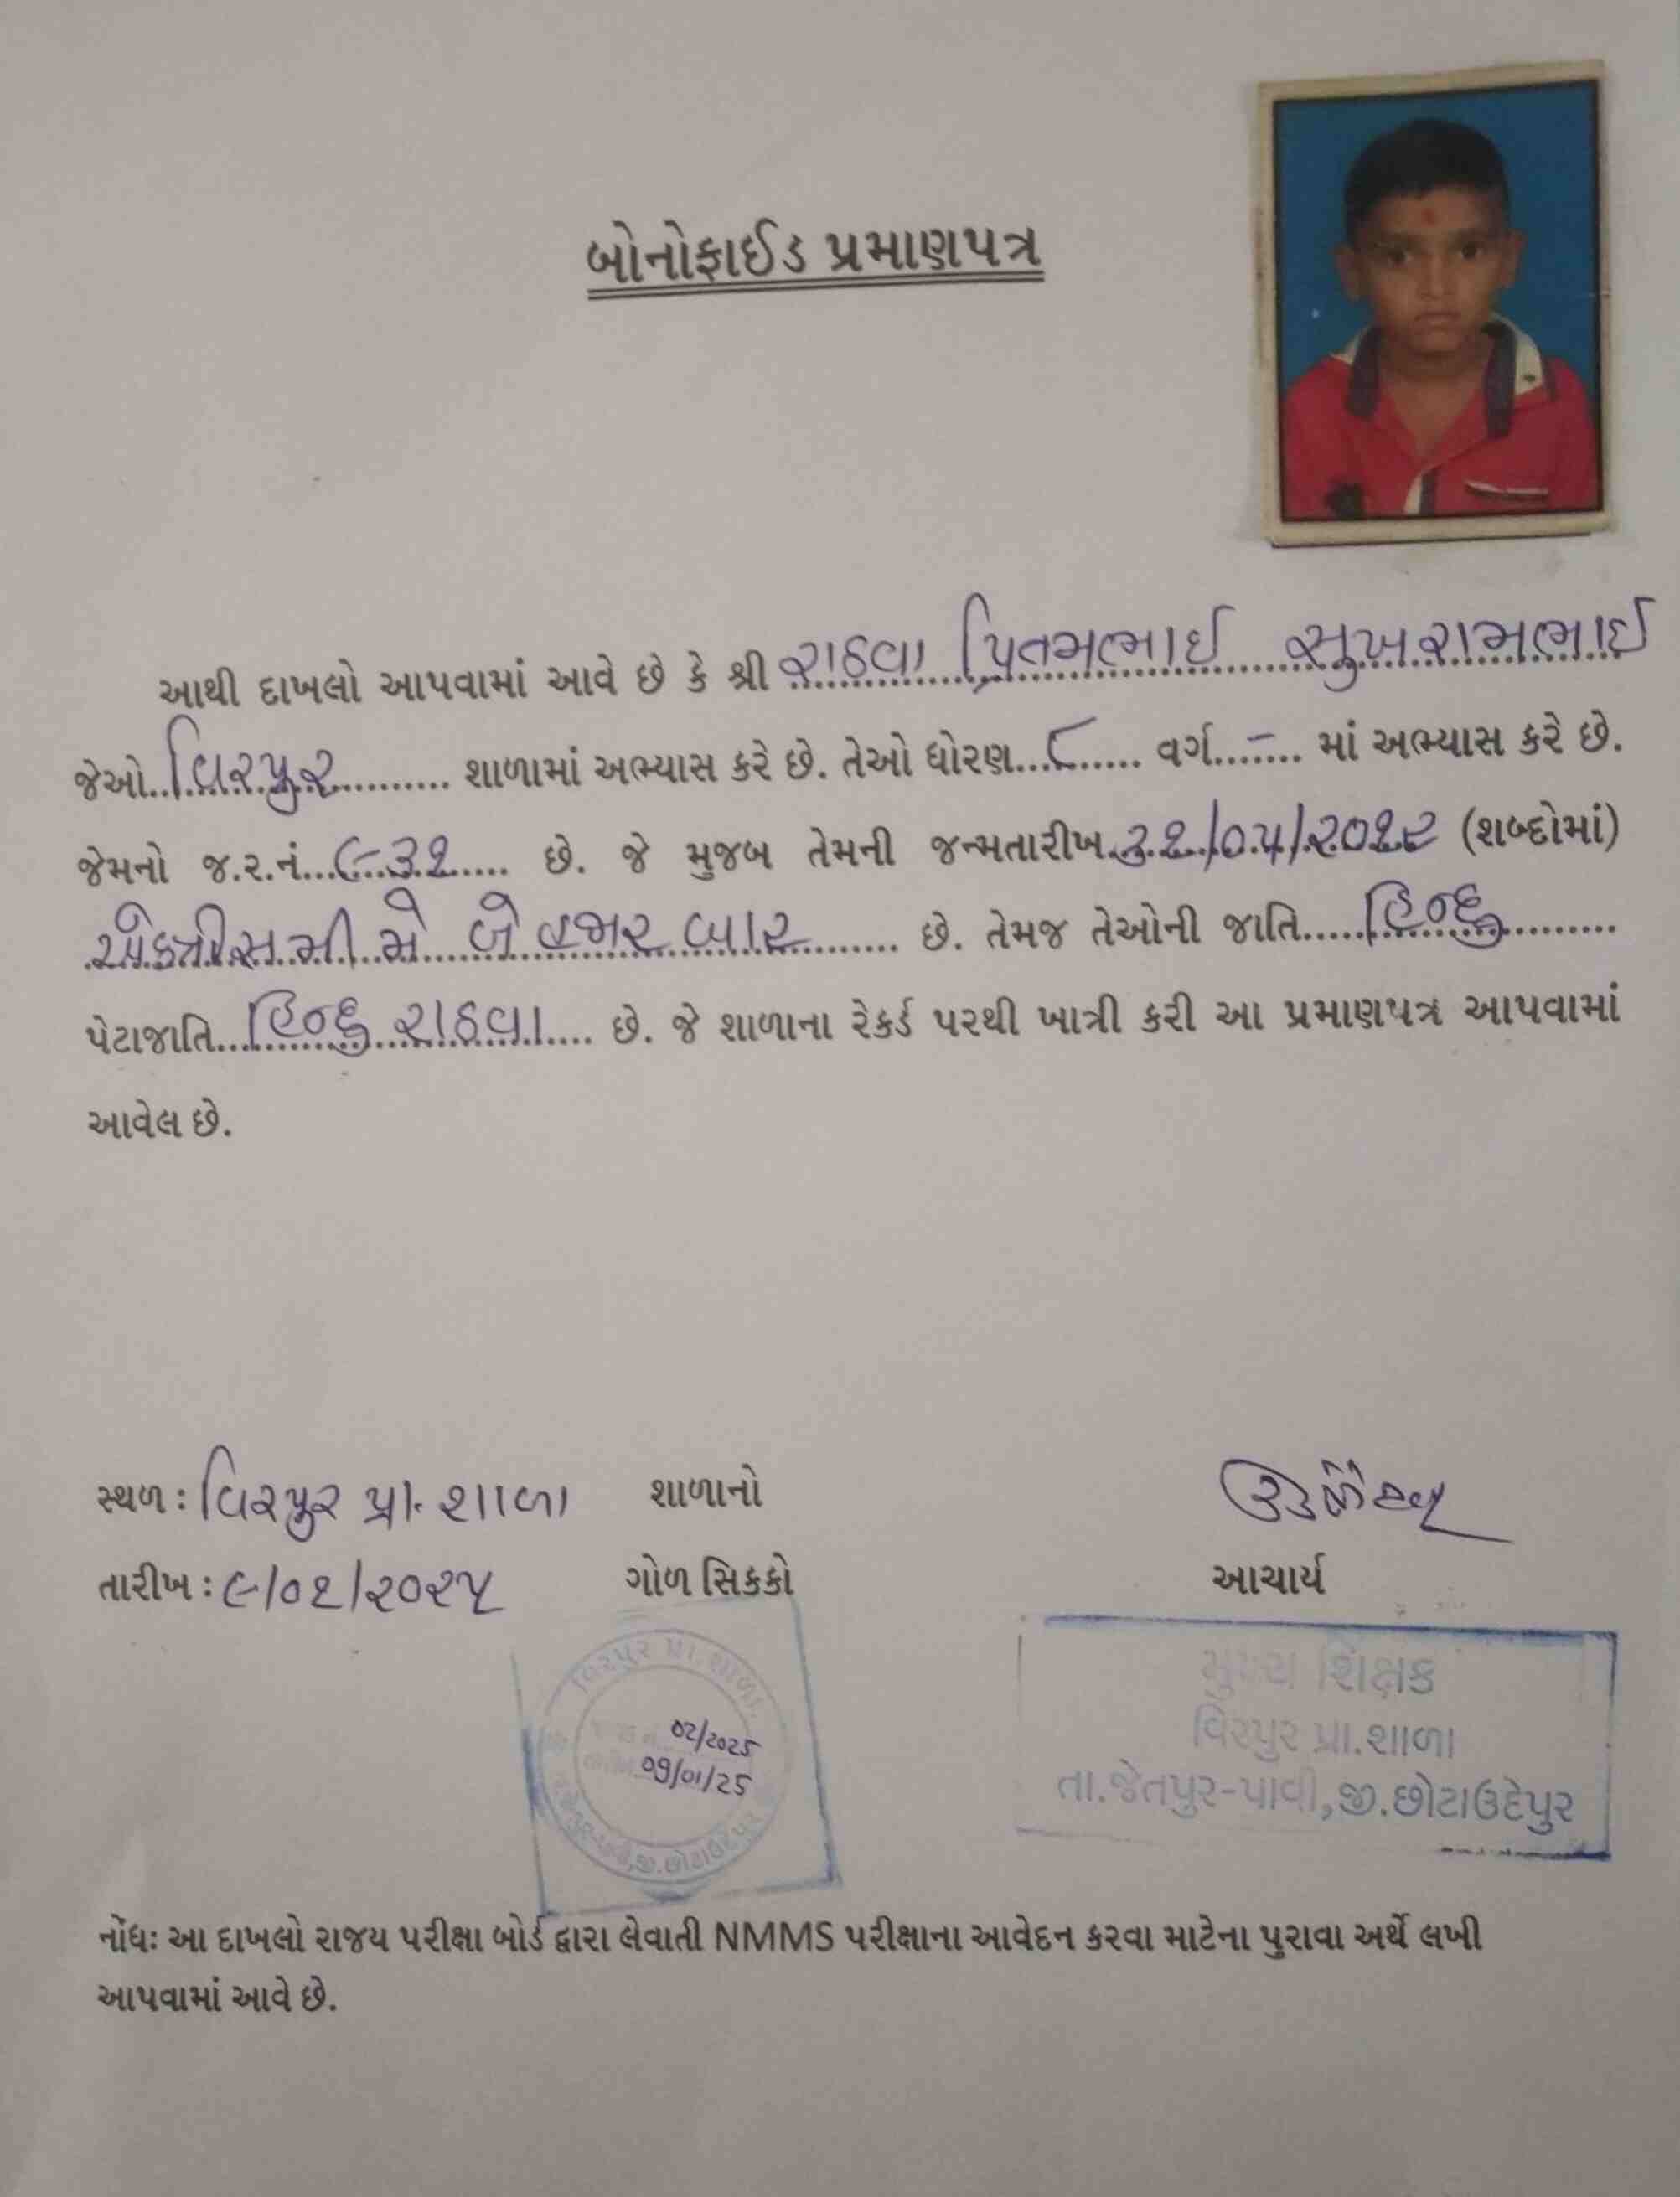 બોનોફાઈડ પ્રમાણપત્ર
આથી દાખલો આપવામાં આવે છે કે શ્રી રાઠવા પ્રિતમભાઈ સુખરામભાઈ
જેઓ..વિરપુર.......... શાળામાં અભ્યાસ કરે છે. તેઓ ધોરણ...૮...... વર્ગ...–.... માં અભ્યાસ કરે છે.
જેમનો જ.ર.નં...૯૩૧..... છે. જે મુજબ તેમની જન્મતારીખ ૩૧/૦૫/૨૦૧૨ (શબ્દોમાં)
એકત્રીસમી મે બે હજાર બાર........ છે. તેમજ તેઓની જાતિ.....હિન્દુ..........
પેટાજાતિ...હિન્દુ રાઠવા.... છે. જે શાળાના રેકર્ડ પરથી ખાત્રી કરી આ પ્રમાણપત્ર આપવામાં
આવેલ છે.
સ્થળ : વિરપુર પ્રા. શાળા શાળાનો
તારીખ : ૯/૦૧/૨૦૨૫ ગોળ સિકકો આચાર્ય
વિરપુર પ્રા. શાળા
02/2025
09/01/25
જી.છોટાઉદેપુર
મુખ્ય શિક્ષક
વિરપુર પ્રા.શાળા
તા.જેતપુર-પાવી,જી.છોટાઉદેપુર
નોંધઃ આ દાખલો રાજય પરીક્ષા બોર્ડ દ્વારા લેવાતી NMMS પરીક્ષાના આવેદન કરવા માટેના પુરાવા અર્થે લખી
આપવામાં આવે છે.